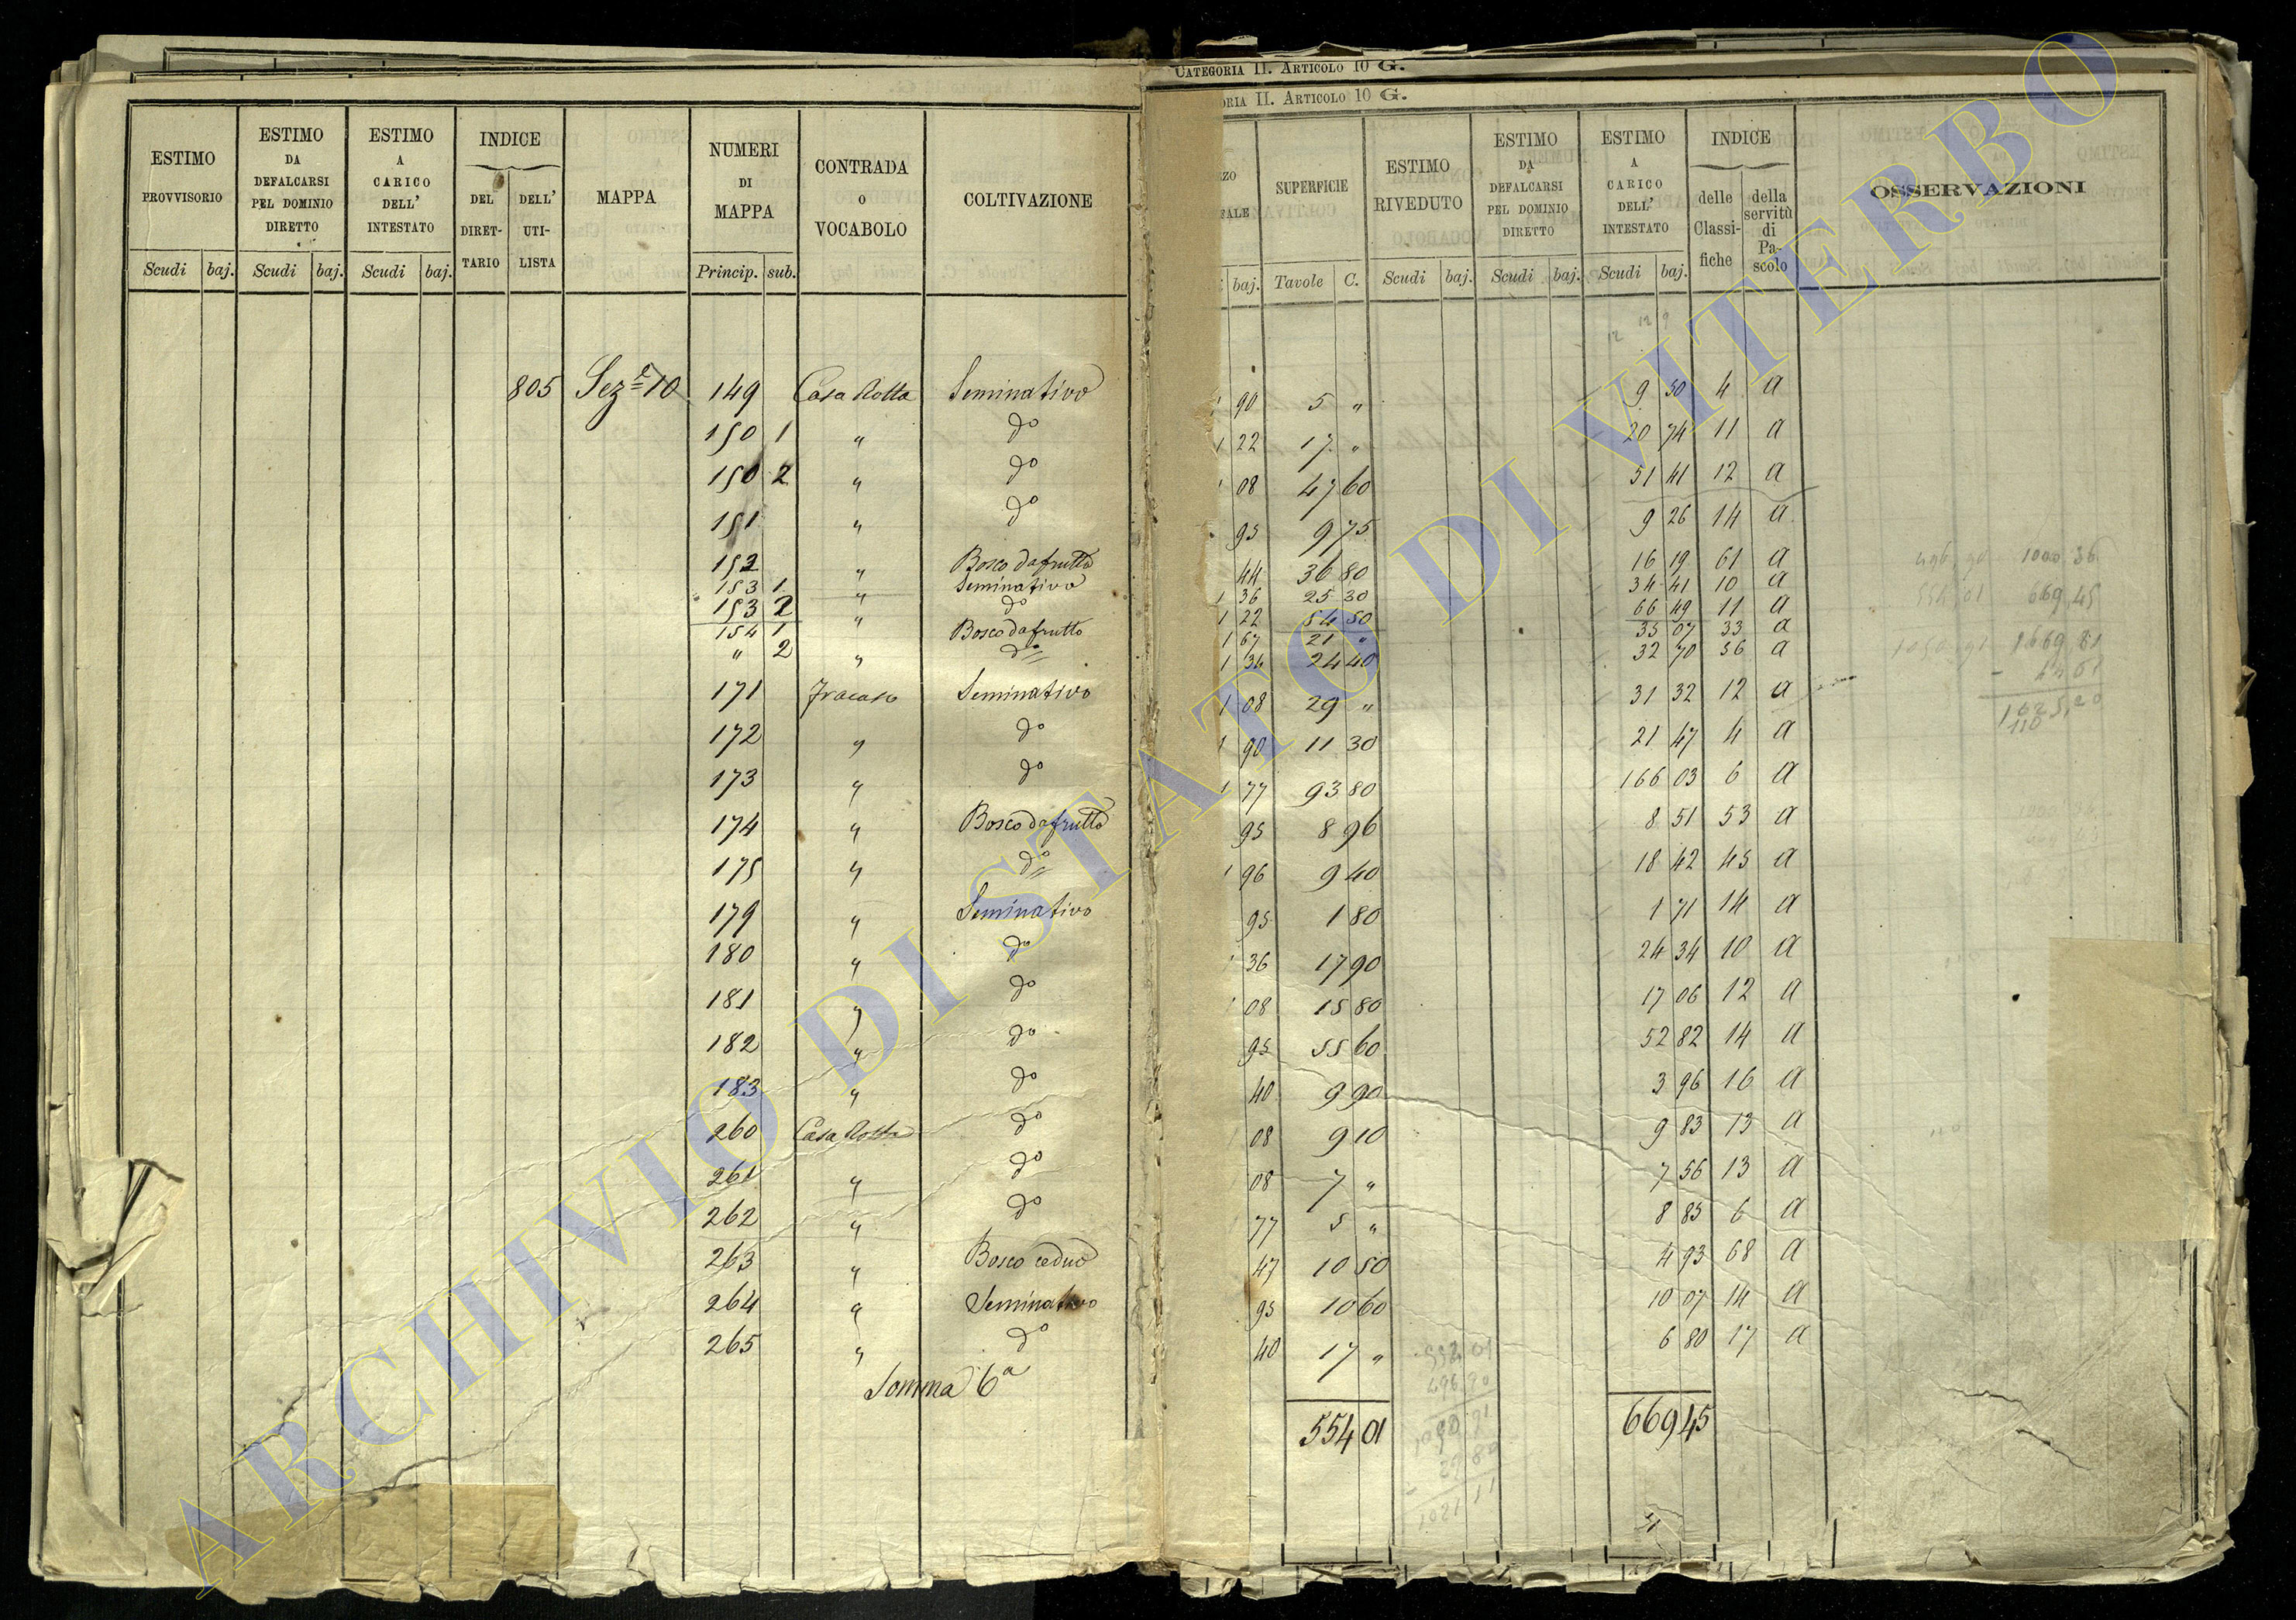 CATEGORIA II. ARTICOLO 10 G.
ORIA II. ARTICOLO 10 G.
ESTIMO PROVVISORIO | ESTIMO DA DEFALCARSI PEL DOMINIO DIRETTO | ESTIMO A CARICO DELL' INTESTATO | INDICE | MAPPA | NUMERI DI MAPPA | CONTRADA O VOCABOLO | COLTIVAZIONE | RZO FALE | SUPERFICIE | ESTIMO RIVEDUTO | ESTIMO DA DEFALCARSI PEL DOMINIO DIRETTO | ESTIMO A CARICO DELL' INTESTATO | INDICE | OSSERVAZIONI
DEL DIRETTARIO | DELL' UTILISTA | delle Classifiche | della servitù di Pascolo
Scudi | baj. | Scudi | baj. | Scudi | baj. | Princip. | sub. | baj. | Tavole | C. | Scudi | baj. | Scudi | baj. | Scudi | baj.
805 Sez.e 10 149 Casa Rotta Seminativo 90 5 " 9 50 4 a
150 1 " do 1 22 17 " 20 74 11 a
150 2 " do 08 47 60 51 41 12 a
151 " do 95 9 75 9 26 14 a
152 " Bosco da frutto 44 36 80 16 19 61 a
153 1 " Seminativo 1 36 25 30 34 41 10 a
153 2 " do 1 22 54 50 66 49 11 a
154 1 Bosco da frutto 1 67 21 " 35 07 33 a
" 2 " do 1 34 24 40 32 70 36 a
171 Fracasso Seminativo 1 08 29 " 31 32 12 a
172 " do 1 90 11 30 21 47 4 a
173 " do 1 77 93 80 166 03 6 a
174 " Bosco da frutto 95 8 96 8 51 53 a
175 " do 1 96 9 40 18 42 45 a
179 " Seminativo 95 1 80 1 71 14 a
180 " do 36 17 90 24 34 10 a
181 " do 08 15 80 17 06 12 a
182 " do 95 55 60 52 82 14 a
183 " do 40 9 90 3 96 16 a
260 Casa Rotta do 08 9 10 9 83 13 a
261 " do 08 7 " 7 56 13 a
262 " do 77 5 " 8 85 6 a
263 " Bosco ceduo 47 10 50 4 93 68 a
264 " Seminativo 95 10 60 10 07 14 a
265 " do 40 17 " 6 80 17 a
Somma 6a 554 01 669 45
1000 36
669 45
1669 81
ARCHIVIO DI STATO DI VITERBO